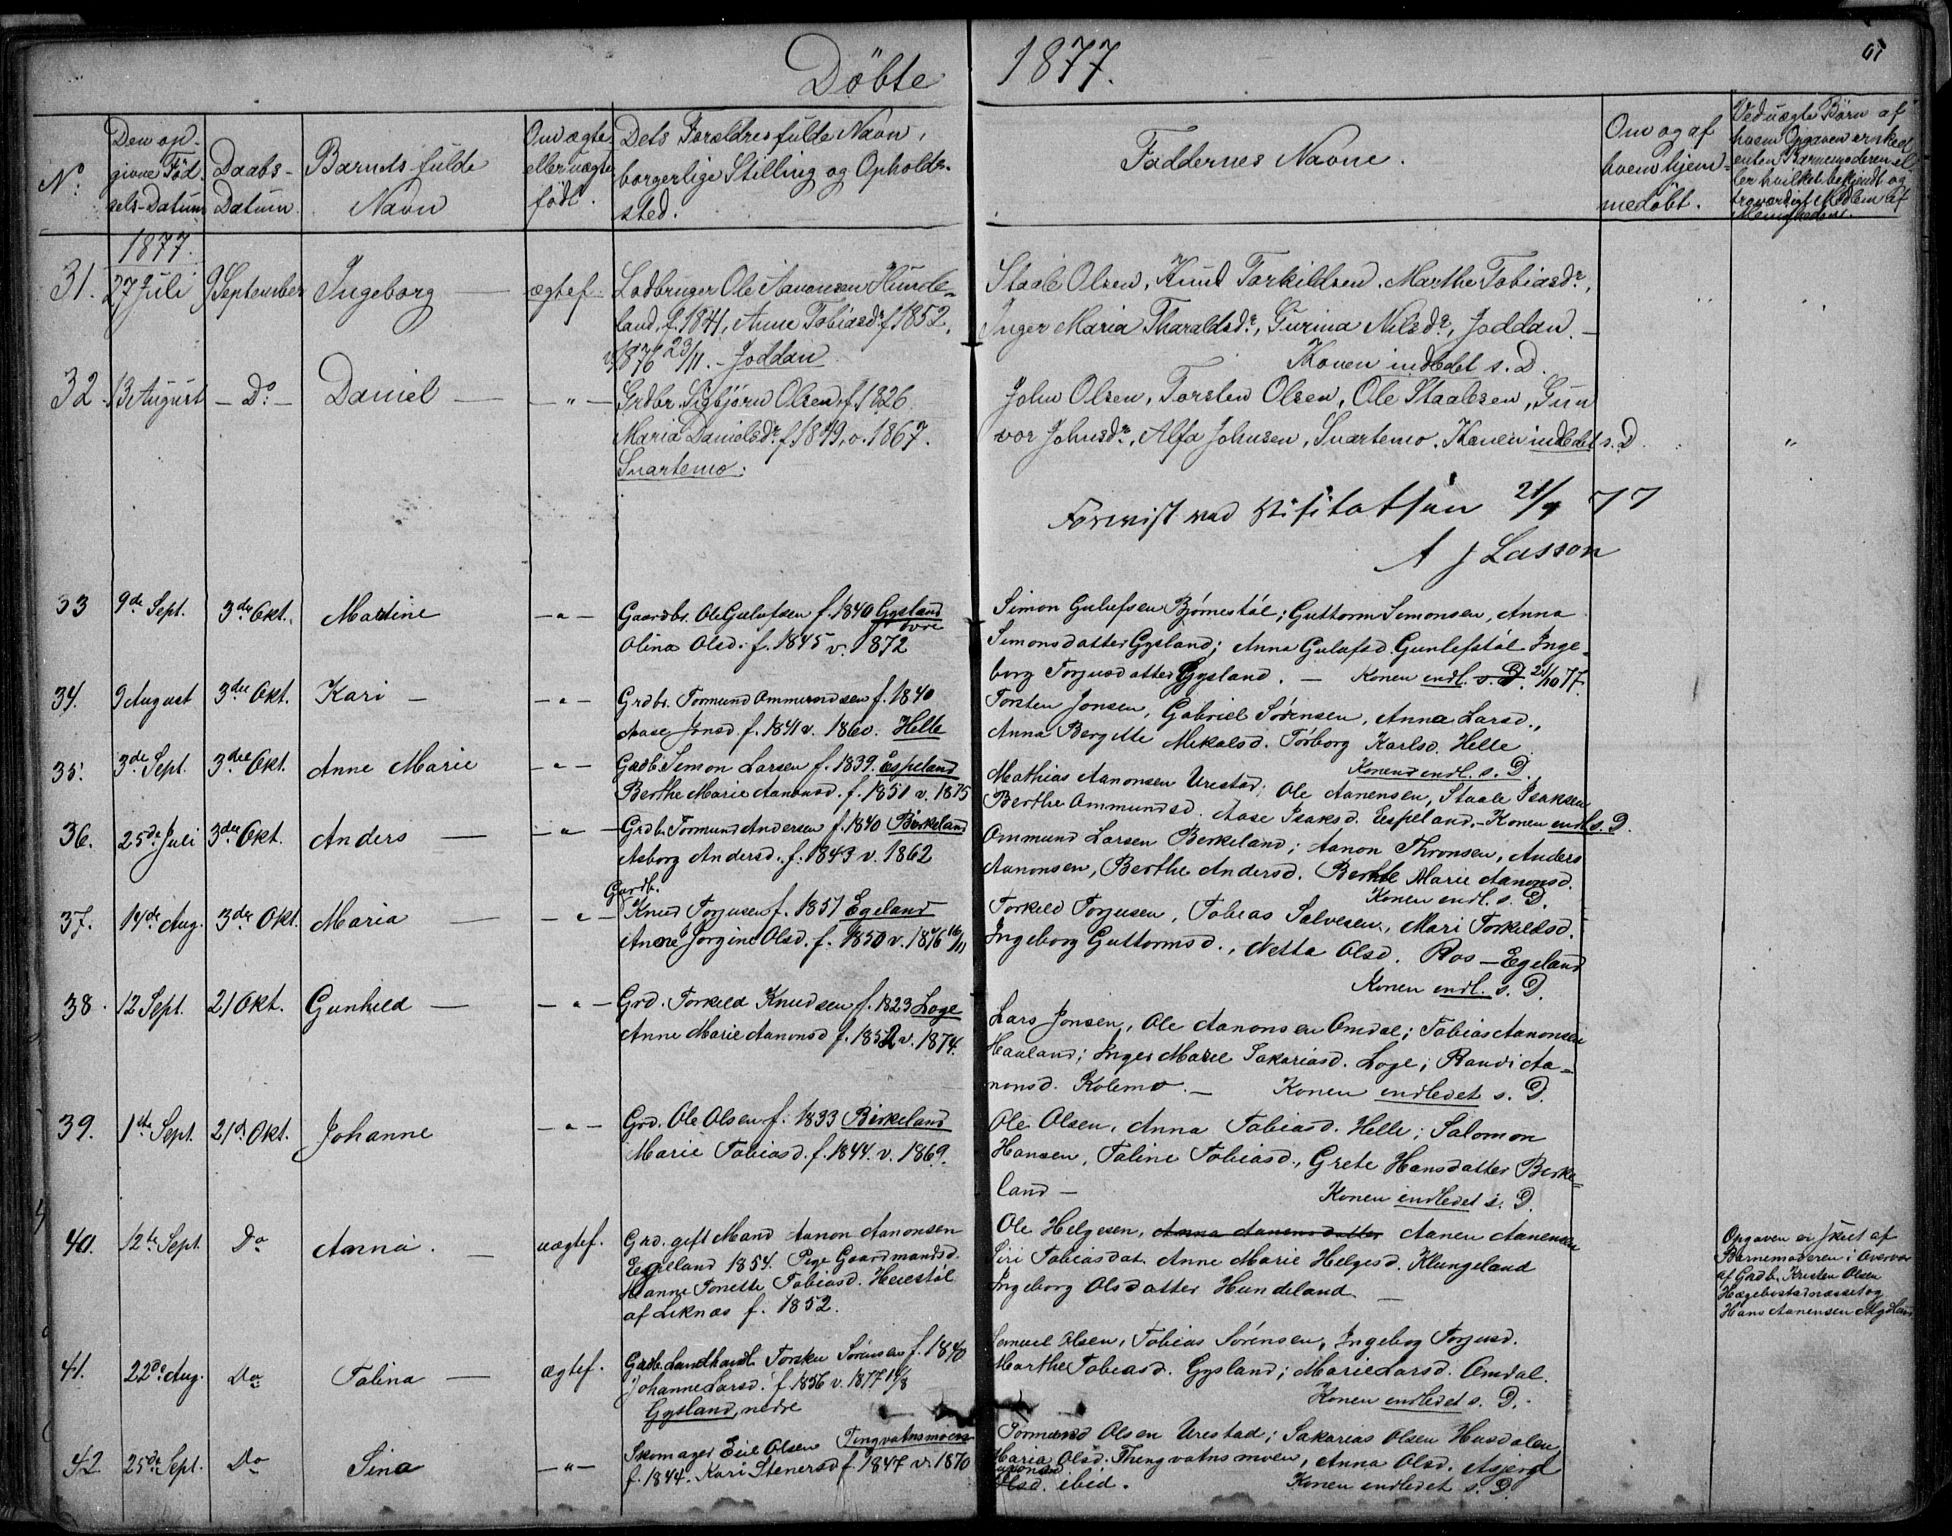 Döbte 1877.
67
N:
Den op-
givne Fød-
sels-Datum
Daabs-
Datum
Barnets fulde
Navn
Om ægte
eller uægte
født.
Dets Forældres fulde Navn,
borgerlige Stilling og Opholds-
sted.
Faddernes Navne.
Om og af
hvem hjem-
medøbt.
Ved uægte Børn af
hvem Opgaven er skeet
enten Barnemoderen el-
ler hvilket bekjendt og
troværdigt Medlem af
Menigheden.
1877.
31. 27 Juli 9 September Ingeborg — ægtef.
Ladbruger Ole Aanonsen Hunde-
land, f. 1841, Anne Tobiasdr f 1852,
v. 1876 23/11. - Joddan
Staale Olsen, Knud Torkildsen. Marthe Tobiasdr,
Inger Maria Tharaldsdr, Gurina Nilsdr, Joddan. —
Konen indledet s. D.
32. 13 August — Do — Daniel — — " —
Grdbr. Sigbjørn Olsen, f. 1826.
Maria Danielsdr. f. 1849, v. 1867.
Svartemo.
John Olsen, Torsten Olsen, Ole Staalesen, Gun
vor Johnsdr, Alfa Johnsen, Svartemo. Konen indledet s. D.
"
Forevist ved Visitatsen 21/9 77
A J Lasson
33 9de Sept. 3die Okt. Martine — " —
Gaardbr. Ole Gulufsen f. 1840 Gysland
övre
Olina Olsd. f. 1845 v. 1872
Simon Gulufsen Bjørnestøl; Guttorm Simonsen, Anna
Simonsdatter Gysland; Anna Gulufsd. Gunlefstøl Inge-
borg Torjusdatter Gysland. — Konen indl. s. D. 21/10 77.
34. 9 August 3die Okt. Kari — — " —
Grdbr. Tormund Ommundsen f. 1840
Aase Jonsd f. 1841 v. 1860. Helle
Torsten Jonsen, Gabriel Sørensen, Anna Larsd.,
Anna Bergitte Mikalsd. Tørborg Karlsd. Helle
Konen indl. s. D.
35. 3de Sept. 3die Okt. Anne Marie — " —
Gadb. Simon Larsen f. 1839. Espeland
Berthe Marie Aanonsd. f. 1851 v. 1875
Mathias Aanonsen Urestad; Ole Aanensen, Staale Isaksen
Berthe Ommundsd. Aase Isaksd. Eespeland. - Konen indl. s. D.
36. 25de Juli 3die Okt. Anders — — " —
Grdb. Tormund Andersen f. 1840 Birkeland
Asborg Andersd. f. 1843 v. 1862
Ommund Larsen Berkeland; Aanon Thronsen, Anders
Aanonsen, Berthe Andersd. Berthe Marie Aanonsd.
Konen endl. s. D.
37. 14de Aug. 3die Okt. Maria — — " —
Gardb.
Knud Torjusen f. 1851 Egeland
Anne Jorgine Olsd. f. 1850 v. 1876 16/11
Torkild Torjusen, Tobias Salvesen, Mari Torkeldsd.
Ingeborg Guttormsd., Netta Olsd. Ros — Egeland
Konen endl. s. D.
38. 12 Sept. 21 Okt. Gunhild — — " —
Grd. Torkild Knudsen f. 1823 Loge
Anne Marie Aanonsd f. 1852 v. 1874.
Lars Jonsen, Ole Aanonsen Omdal; Tobias Aanonsen
Haaland; Inger Marie Sakariasd. Loge; Randi Aa-
nonsd. Kolemo. — Konen endledet s. D.
39. 1ste Sept. 21de Okt. Johanne — " —
Grd. Ole Olsen f. 1833 Birkeland
Marie Tobiasd. f. 1844. v. 1869.
Ole Olsen, Anna Tobiasd. Helle; Salomon
Hansen, Taline Tobiasd., Grete Hansdatter Berke-
land — Konen endledet s. D.
40. 12te Sept. Do Anna. — uægtef.
Grd. gift Mand Aanon Aanonsen
Eegeland 1854. Pige Gaardmandsd.
Hanne Tonette Tobiasd. Heiestøl
af Liknæs f. 1852.
Ole Helgesen, Anna Aanensdatter Aanen Aanensen
Siri Tobiasdat. Anne Marie Helgesd. Klungeland
Ingeborg Olsdatter Hundeland. —
Opgaven er skeet af
Barnemoderen i Overvær
af Grdb. Kresten Olsen
Hægebostadnæsset og
Hans Aanensen Mydland
41. 22de Aug. Do Talina — ægtef.
Gadb. Landhandl. Torsken Sørensen f. 1840
Johanne Larsd. f. 1856 v. 1877 14/8
Gysland, nedre
Samuel Olsen, Tobias Sörensen, Ingebog Torjusd.
Marthe Tobiasd. Gysland; Marie Larsd. Omdal.
Konen endledet s. D.
42 25de Sept. Do Sina — " —
Skomager Eiel Olsen Tingvatnsmoen
f. 1844. Kari Stenersd f. 1847 v. 1870
Tormund Olsen Urestad; Sakarias Olsen Husdalen,
Maria Olsd. Thingvatnsmoen, Anna Olsd. Asjerd
Aanonsd
Olsd. ibid. Konen endledet s. D.